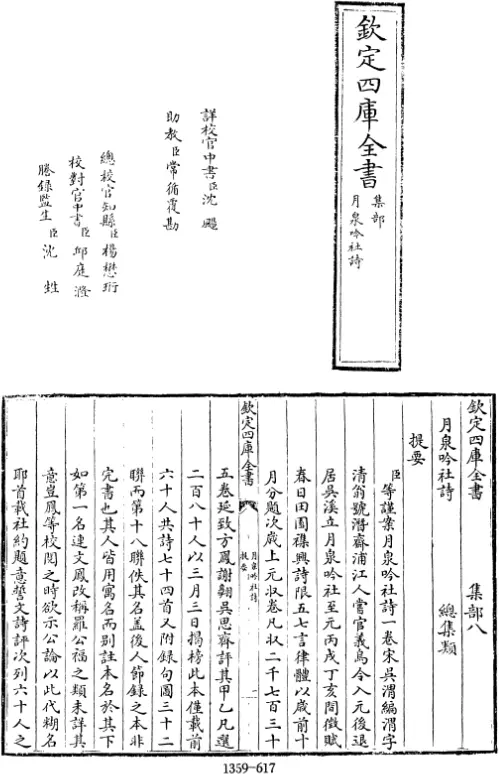 欽定四庫全書
集部
月泉吟社詩
詳校官中書臣沈颺
助教臣常循覆勘
總校官知縣臣楊懋珩
校對官中書臣邱庭漋
謄錄監生臣沈甡
欽定四庫全書 集部八
月泉吟社詩 總集類
提要
臣等謹案月泉吟社詩一卷宋吳渭編渭字
清翁號潛齋浦江人嘗官義烏令入元後退
居吳溪立月泉吟社至元丙戌丁亥間徵賦
春日田園襍興詩限五七言律體以歲前十
月分題次歲上元收卷凡收二千七百三十
欽定四庫全書
月泉吟社詩
提要
一
五卷延致方鳳謝翱吳思齋評其甲乙凡選
二百八十人以三月三日揭榜此本僅載前
六十人共詩七十四首又附錄句圖三十二
聯而第十八聯佚其名盖後人節錄之本非
完書也其人皆用寓名而別註本名於其下
如第一名連文鳳改稱羅公福之類未詳其
意豈鳳等校閱之時欲示公論以此代糊名
耶首載社約題意誓文詩評次列六十人之
1359-617